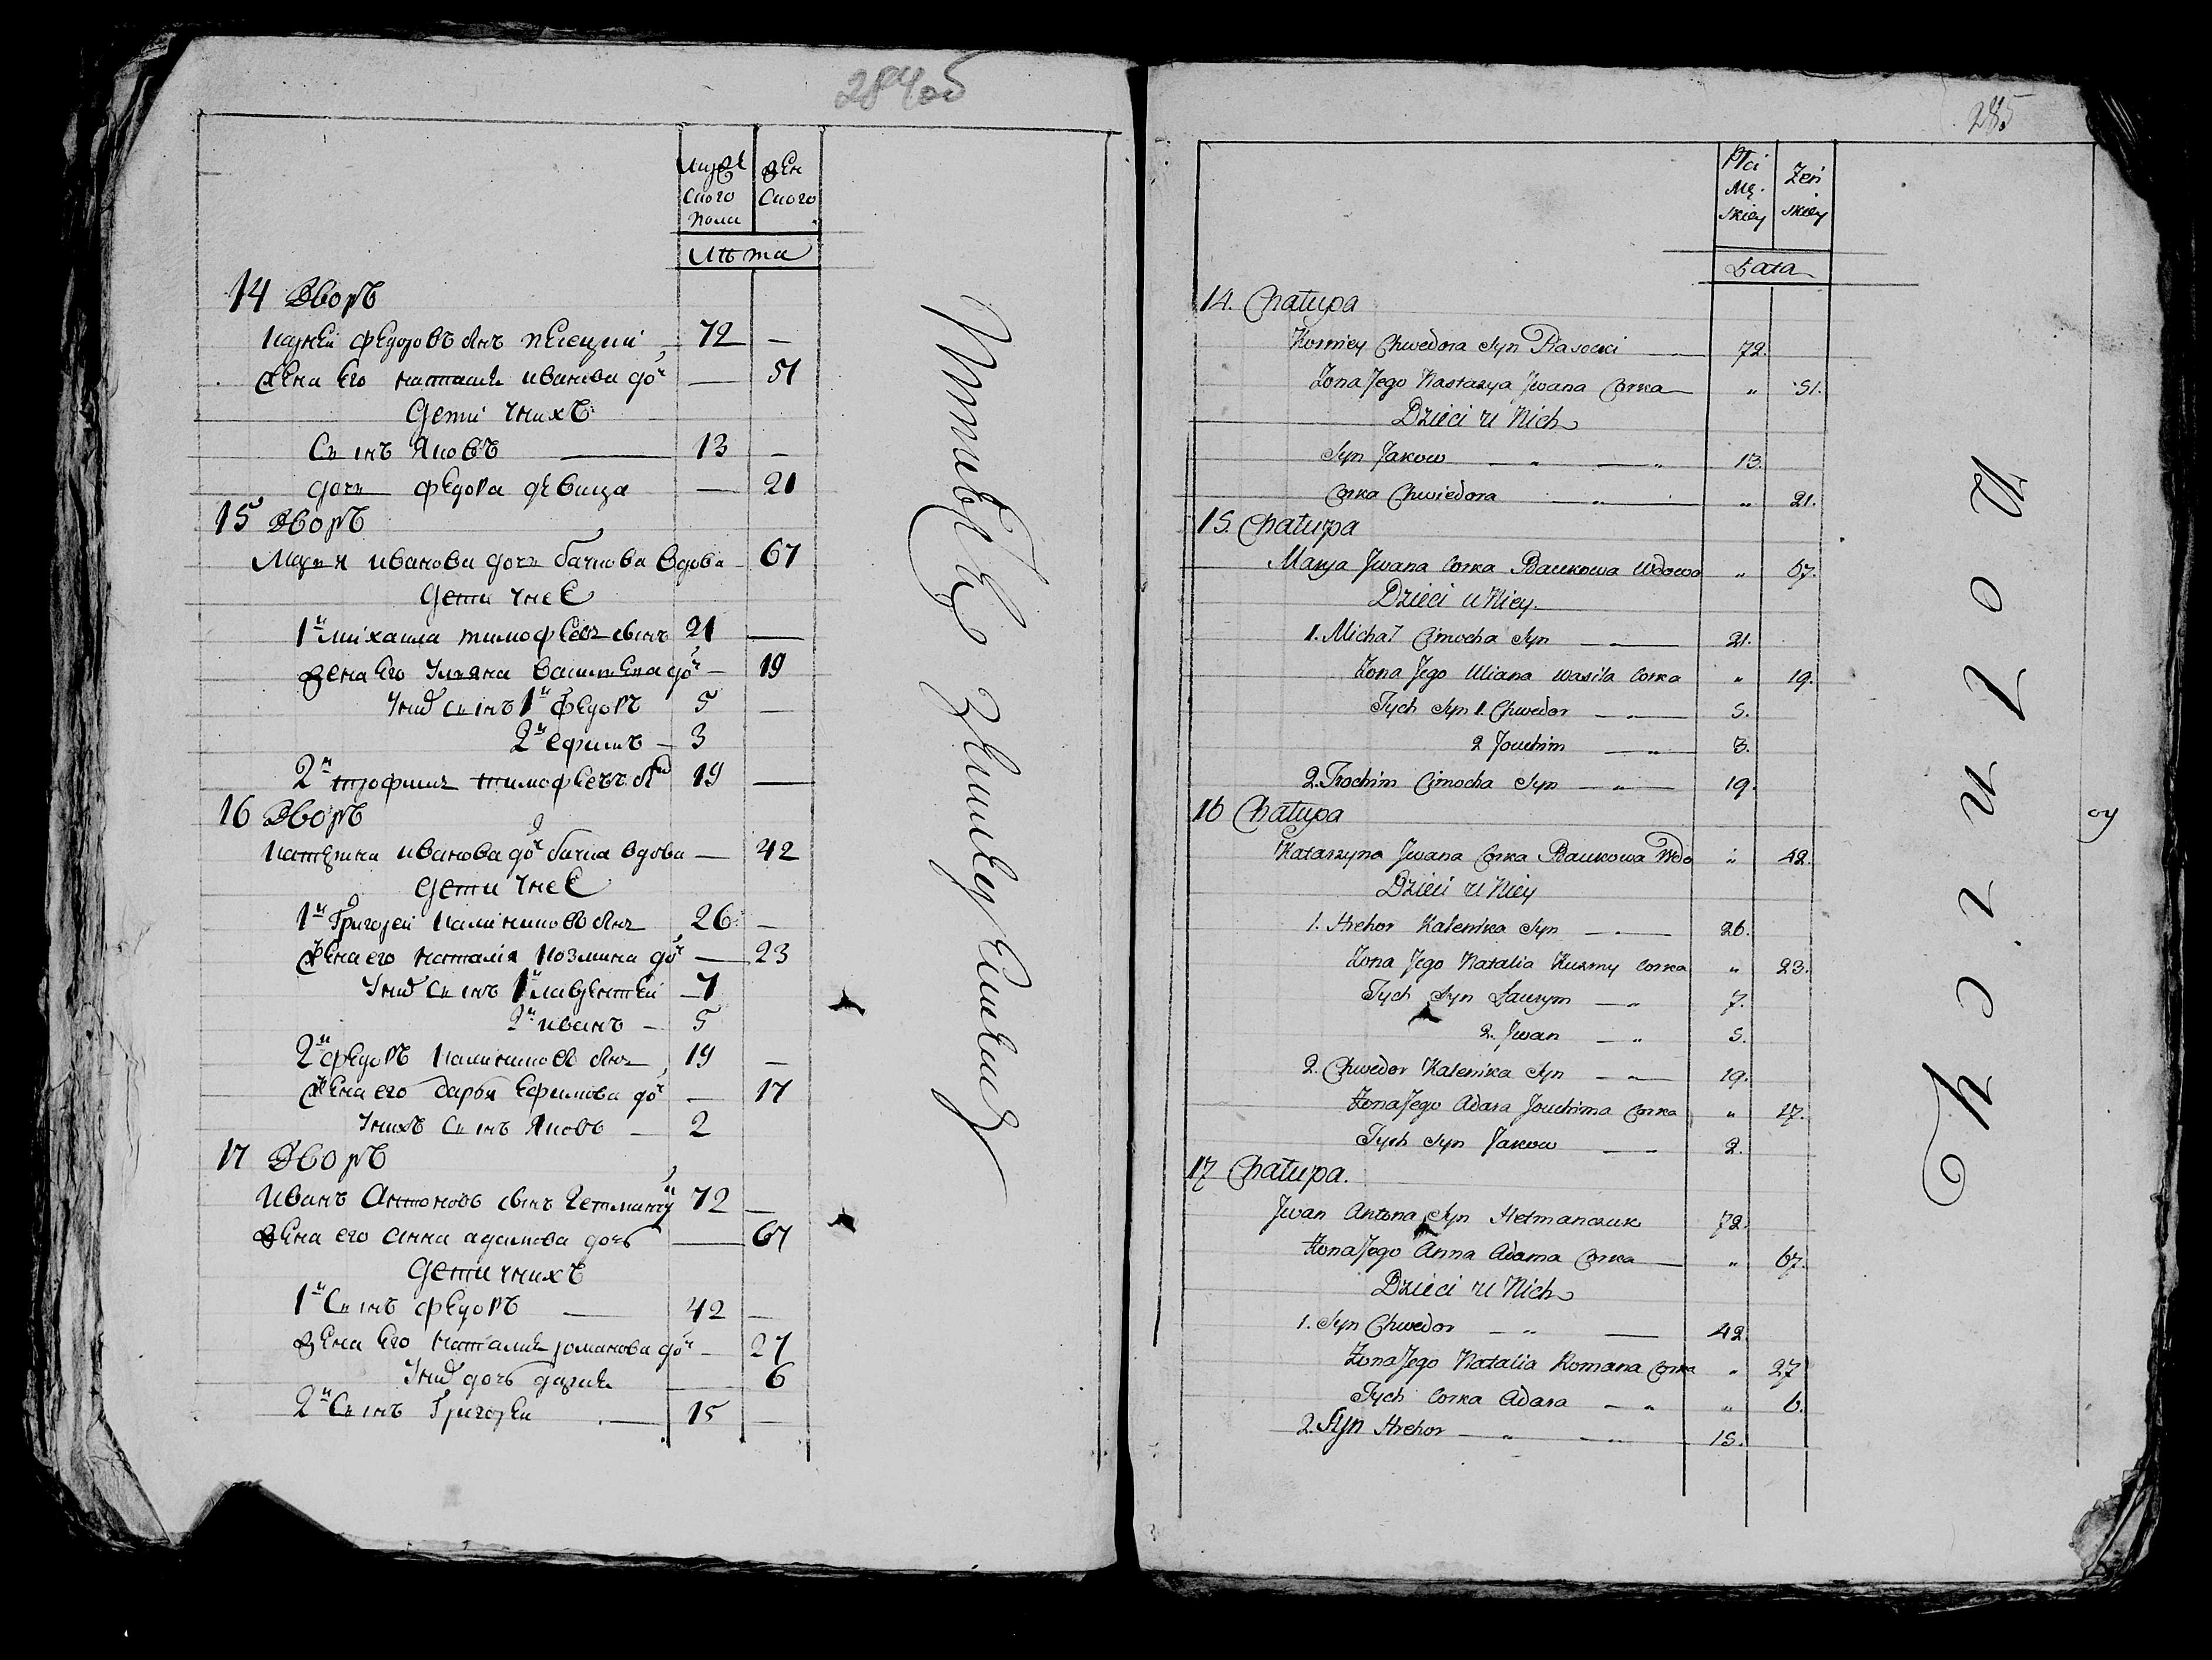 284об
Мужескаго пола
женскаго
Лѣта
14 Дворъ
Карней Федоровъ сынъ песецкий 72 —
Жена Его настасия иванова доч — 51
Дети унихъ
Сынъ Яковъ — 13 —
дочь федора девица — 21
15 Дворъ
Марья иванова дочь бачкова вдова 67
Дети унеё
1й михаила тимофеевъ сынъ 21 —
жена Его Ульяна васильева доч — 19
Уних сынъ 1й федоръ 5 —
2й ефимъ — 3
2й трофимъ тимофеевъ сынъ 19 —
16 Дворъ
Катерина иванова доч вдова — 42
дети унеё
1й Григорей калениковъ сынъ 26 —
жена его наталия козмина доч — 23
Уних сынъ 1й лаврентей — 7
2й иванъ — 5
2й федоръ калениковъ сынъ 19 —
жена его дарья Ефимова доч — 17
Унихъ сынъ Яковъ — 2
17 Дворъ
Иванъ Антоновъ сынъ Гетманчу 72 —
жена его анна адамова дочь — 67
Дети унихъ
1й Сынъ федоръ — 42 —
жена Его наталия романова доч — 27
Уних дочь дария — 6
2й Сынъ Григорей — 15 —
285
Płci Mę. skiey
Zeń skiey
Lata
14. Chałupa
Korniey Chwedora Syn Piasecki — 72.
Zona Jego Nastazya Jwana Corka — " 51.
Dzieci u Nich
Syn Jakow — " — " 13.
Corka Chwiedora — " — " 21.
15. Chałupa
Marya Jwana Corka Baukowa Wdowa " 67.
Dzieci u Niey.
1. Michał Cimocha Syn — " — 21.
Zona Jego Uliana Wasila Corka " 19.
Tych Syn 1. Chwedor — " — 5.
2 Jouchim — " — 3.
2. Trochim Cimocha Syn — " — 19.
16 Chałupa
Katarzyna Jwana Corka Baukowa Wdo " 42.
Dzieci u Niey
1. Hrehor Kalenika Syn — " — 26.
Zona Jego Natalia Kuzmy Corka " 23.
Tych Syn Laurym — " 7.
2. Jwan — " 5.
2. Chwedor Kalenika Syn — " — 19.
Zona Jego Adara Jouchima Corka " 17.
Tych Syn Jakow — — 2.
17 Chałupa.
Jwan Antona Syn Hetmanczuk 72.
Zona Jego Anna Adama Corka — " 67.
Dzieci u Nich
1. Syn Chwedor — " — 42.
Zona Jego Natalia Romana Corka " 27
Tych Corka Adara — " " 6.
2. Syn Hrehor — " — " 15.